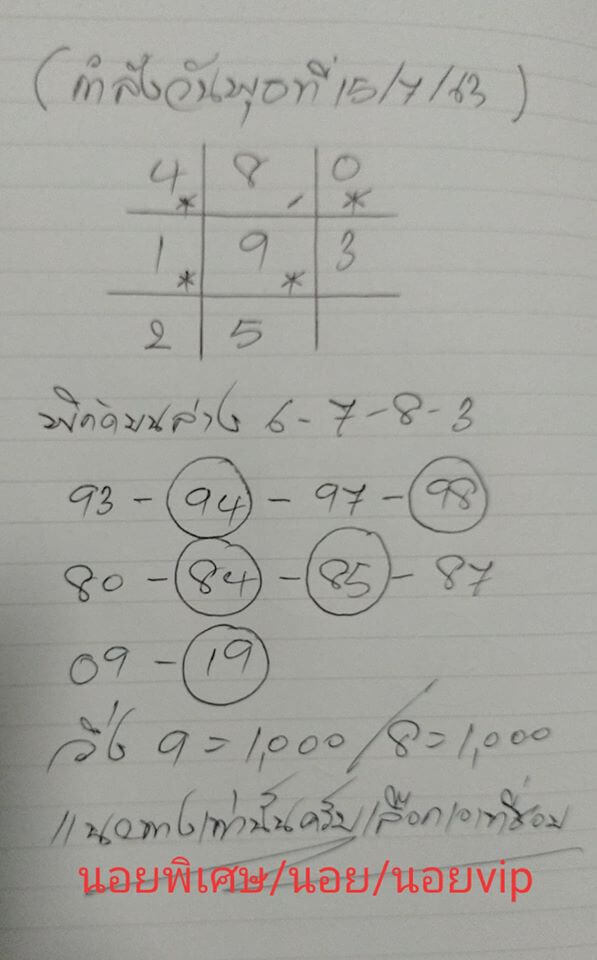 (กำลังวันพุธที่ 15/7/63)
4* 8, 0*
1* 9* 3
2 5
พิกัดบนล่าง 6-7-8-3
93 - 94 - 97 - 98
80 - 84 - 85 - 87
09 - 19
วิ่ง 9=1,000/8=1,000
แนวทางเท่านั้นครับเลือกเอาที่ชอบ
นอยพิเศษ/นอย/นอยvip